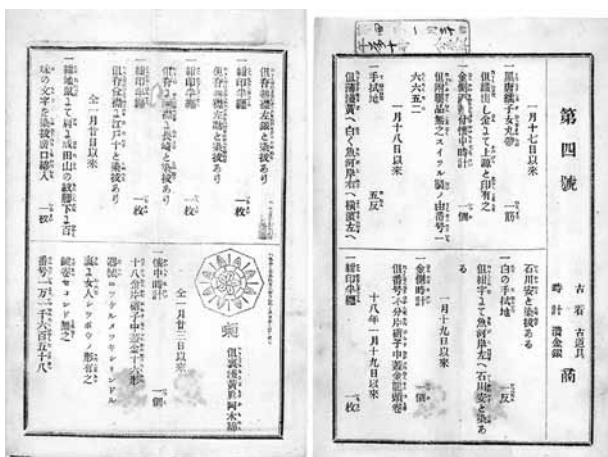 第四號
古着 古道具
時計 潰金銀 商
一月十七日以來
一黒唐繻子女丸帶 一筋
但縫出し金よて上源と印有之
一金側 付懷中時計 一個
但附屬品無之スイツル製ノ由番号一
六六五二
一月十八日以來
一手拭地 五反
但薄淺黄へ白く魚河岸右へ橫濱左へ
石川安と染拔ある
一白の手拭地 一反
但紺字よて魚河岸左へ石川安と染あ
る
一月十九日以來
一金側時計 一個
但番号不分片硝子中蓋金龍頭巻
十八年一月十九日以來
一紺印半纏 一枚
但脊無襟左銀と染拔あり
一紺印半纏 一枚
但脊無襟左 と染拔あり
一紺印半纏 一枚
但脊 長崎と染拔あり
一紺印半纏 一枚
但脊無襟よ江戸十と染拔あり
仝一月廿日以來
一紺地 よて 成田山の紋 下よ百
味の文字を染拔 口綿入 一枚
但裏淺黄眞岡木綿
仝一月廿三日以來
一懷中時計 一個
十八金片硝子中蓋金十六形
ロツクルメツキシリンドル
裏よ女人シツポウノ形有之
鍵巻セコンド無之
番号一万二千六百五十八